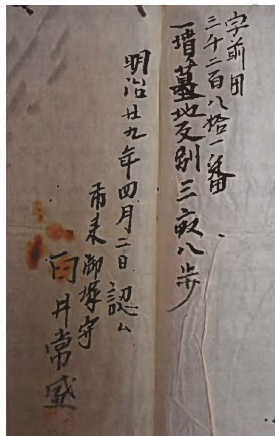 字前田
三千二百八拾一番
一墳墓地反別三畝八歩
明治廿九年四月二日認ム
御塚守
臼井常盛